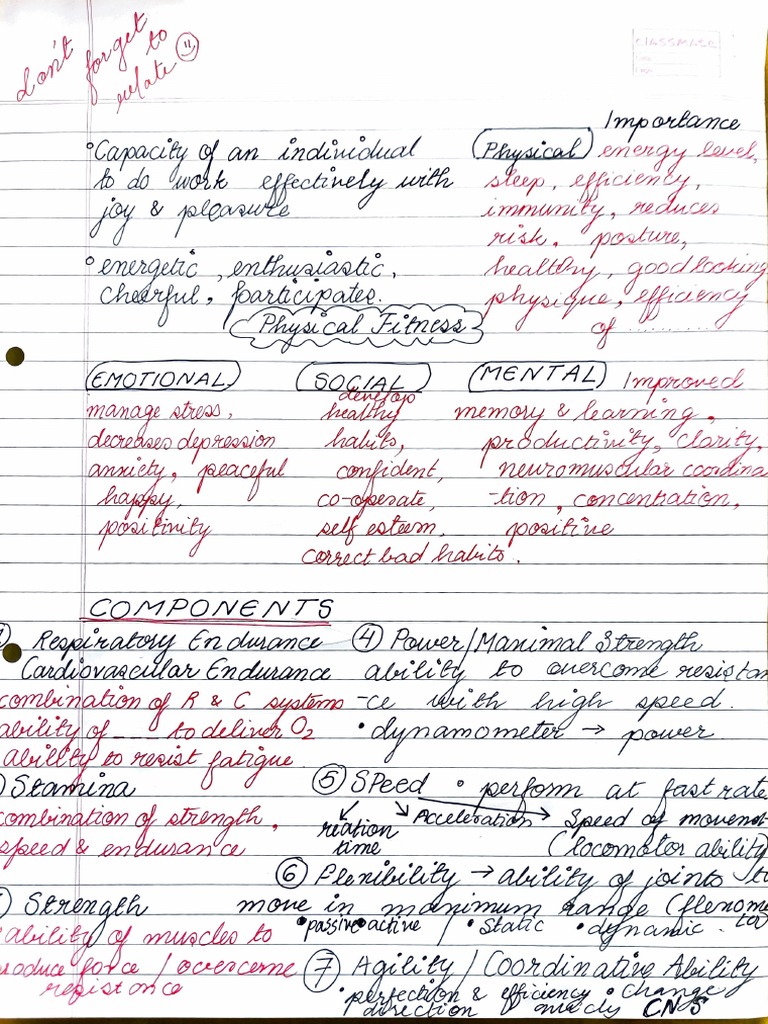 don't
forget
to
relate
CLASSMATE
Capacity of an individual
to do work effectively with
joy & pleasure
energetic, enthusiastic,
cheerful, participates.
Physical Fitness
Importance
Physical energy level,
sleep, efficiency,
immunity, reduces
risk, posture,
healthy, good looking
physique, efficiency
of ..........
EMOTIONAL
manage stress,
decreases depression
anxiety, peaceful
happy,
positivity
SOCIAL
develop
healthy
habits,
confident,
co-operate,
self esteem,
correct bad habits.
MENTAL Improved
memory & learning,
productivity, clarity,
neuromuscular coordina
-tion, concentration,
positive
COMPONENTS
Respiratory Endurance
Cardiovascular Endurance
combination of R & C systems
ability of ___ to deliver O2
ability to resist fatigue
Stamina
combination of strength,
speed & endurance
Strength
ability of muscles to
produce force / overcome
resistance
④ Power/Maximal Strength
ability to overcome resistan
-ce with high speed.
• dynamometer → power
⑤ Speed • perform at fast rate
reation
time
Acceleration
Speed of movemet
(locomotor ability)
⑥ Flexibility → ability of joints to
move in maximum range (flexome
• passive • active / • Static • dynamic.
⑦ Agility / Coordinative Ability
• perfection & efficiency • change
direction CNS